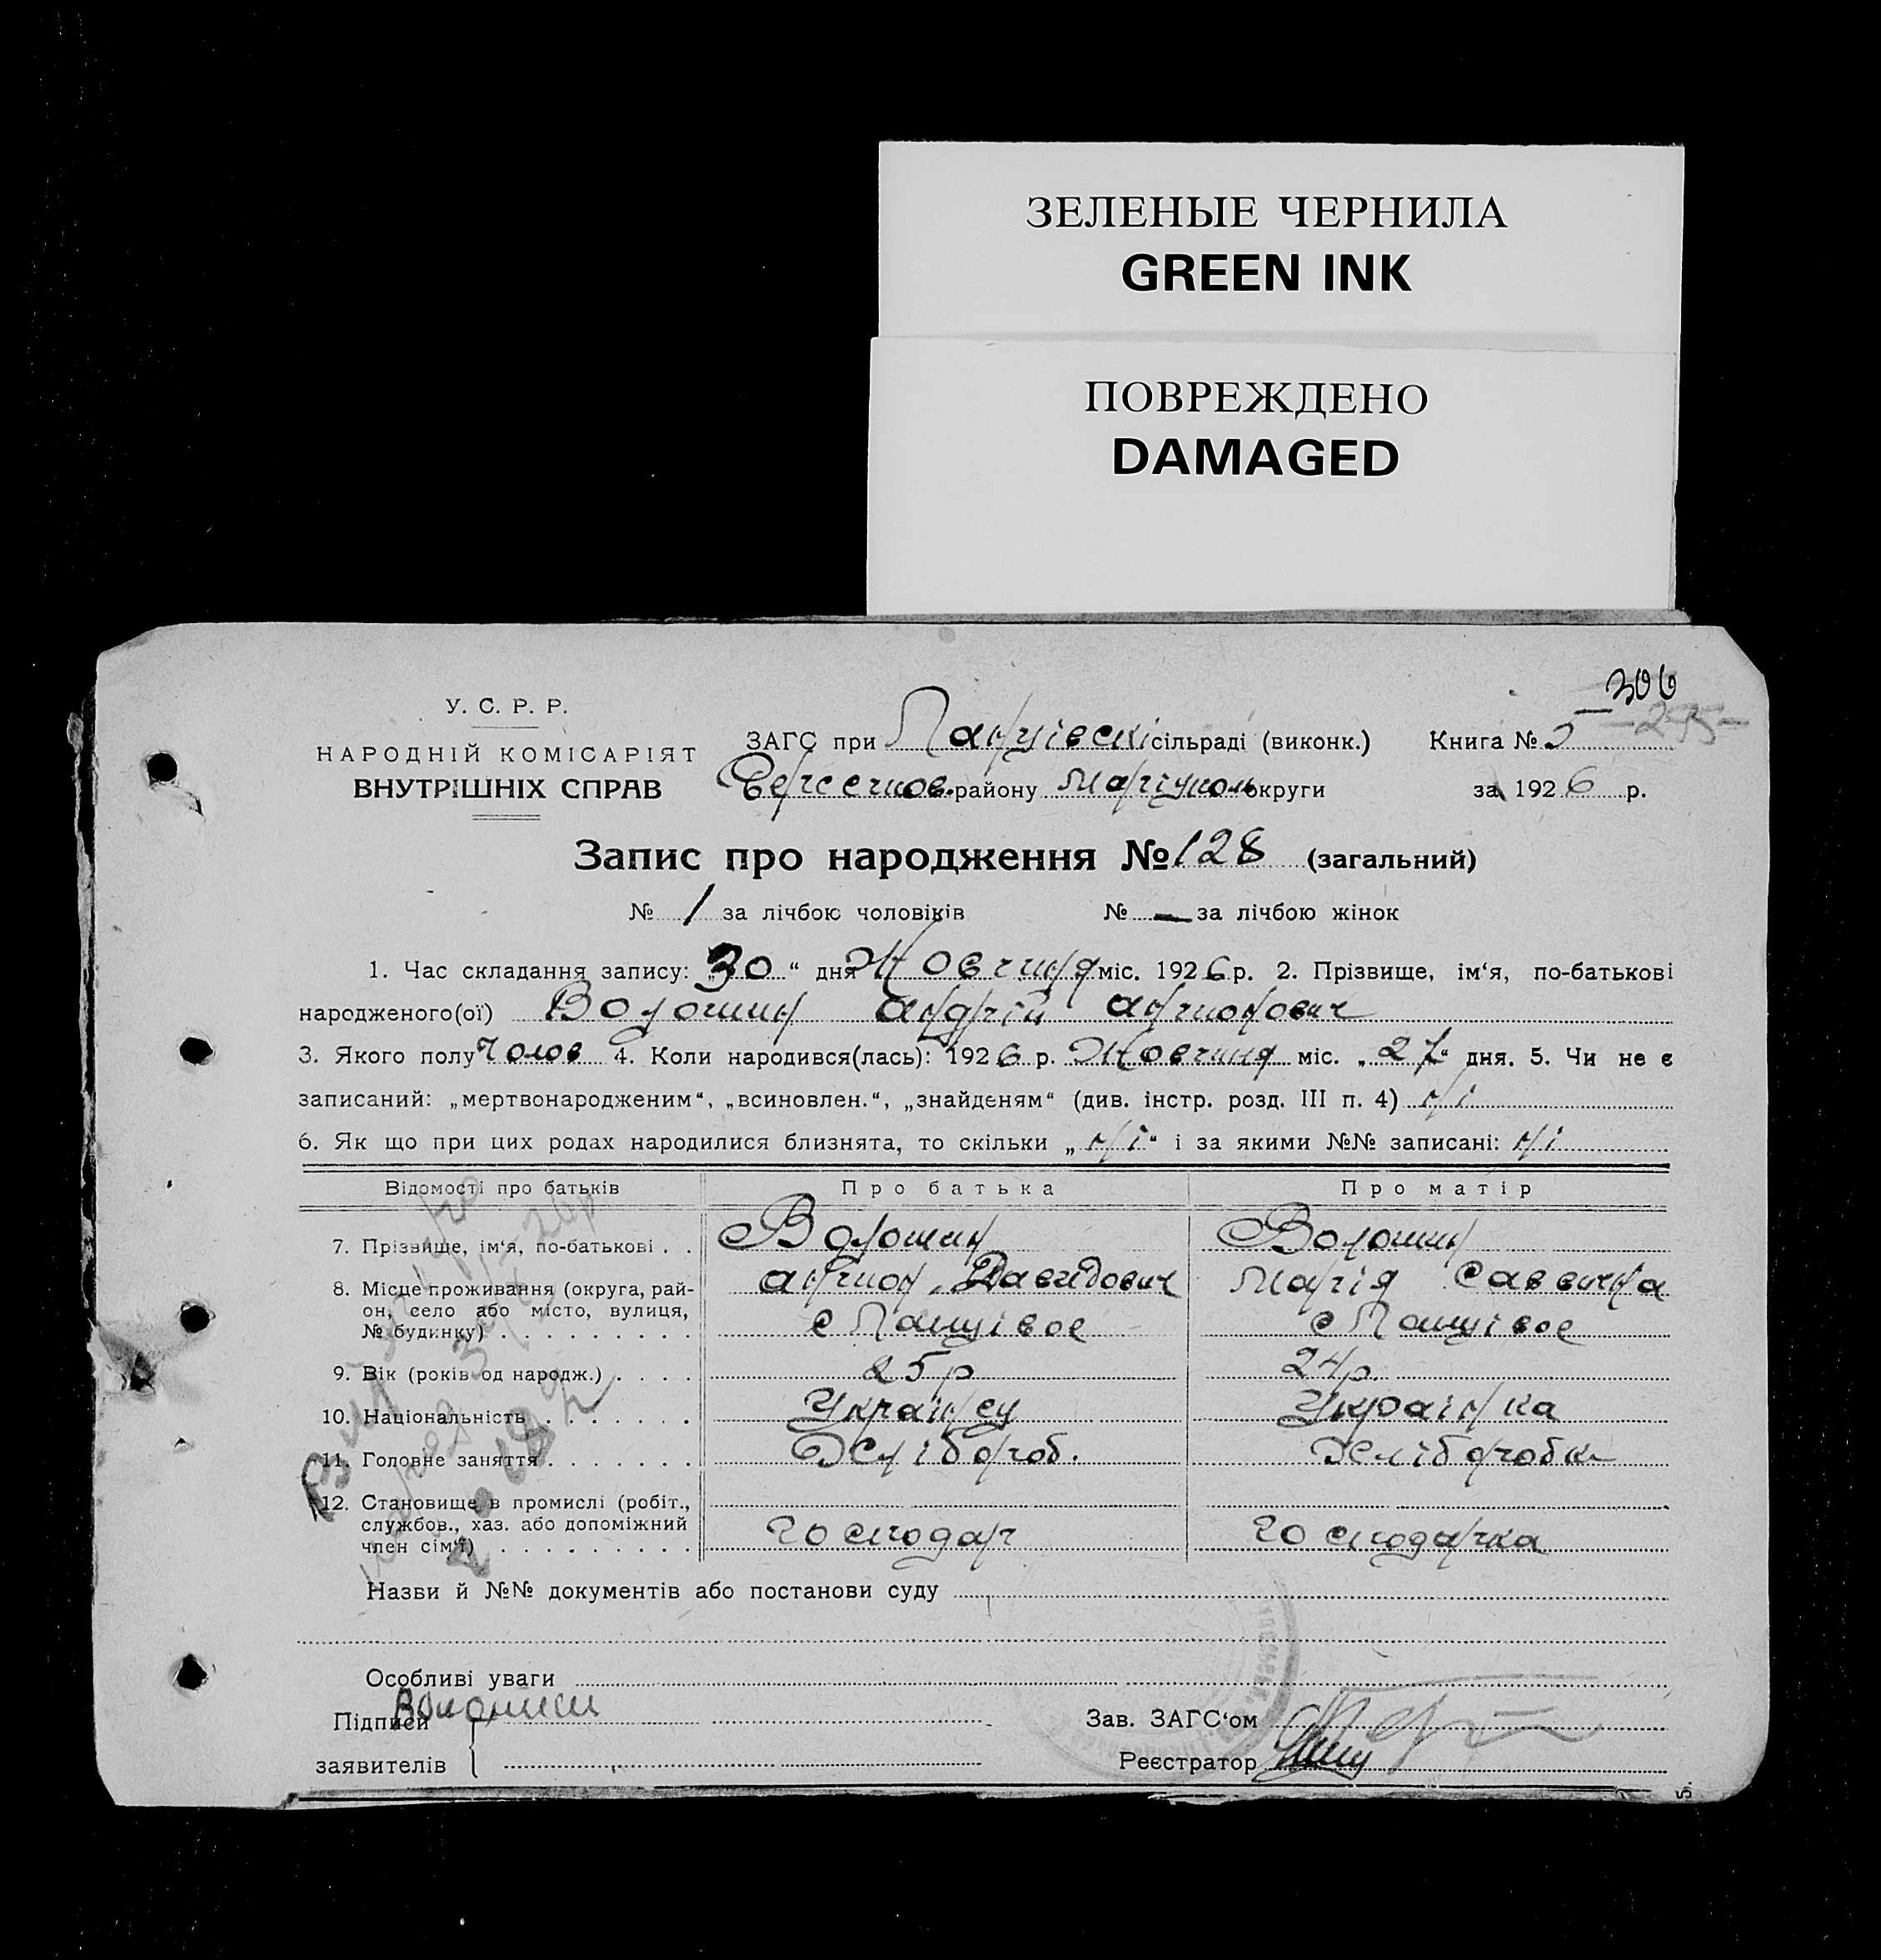 ЗЕЛЕНЫЕ ЧЕРНИЛА
GREEN INK
ПОВРЕЖДЕНО
DAMAGED
306
У. С. Р. Р.
НАРОДНІЙ КОМІСАРІЯТ
ВНУТРІШНІХ СПРАВ
ЗАГС при сільраді (виконк.) Книга № 5
району Маріуполь округи за 1926 р.
Запис про народження № 128 (загальний)
№ 1 за лічбою чоловіків № — за лічбою жінок
1. Час складання запису: „30“ дня Жовтня міс. 1926 р. 2. Прізвище, ім‘я, по-батькові
народженого(ої) Волошин Андрій Антонович
3. Якого полу Чолов 4. Коли народився(лась): 1926 р. Жовтня міс. „27“ дня. 5. Чи не є
записаний: „мертвонародженим“, „всиновлен.“, „знайденям“ (див. інстр. розд. III п. 4) ні
6. Як що при цих родах народилися близнята, то скільки „ні“ і за якими №№ записані: ні
Відомості про батьків Про батька Про матір
7. Прізвище, ім‘я, по-батькові . . Волошин Волошин
Антон Давидович Марія Саввична
8. Місце проживання (округа, рай-
он, село або місто, вулиця,
№ будинку) . . . . . . . . . с с
9. Вік (років од народж.) . . . . 25 р 24 р.
10. Національність . . . . . . . Українец Українка
11. Головне заняття . . . . . . . Хлібороб. Хліборобка
12. Становище в промислі (робіт.,
службов., хаз. або допоміжний
член сім‘ї) . . . . . . . . . Господар Господарка
Назви й №№ документів або постанови суду
Особливі уваги
Підписи Волошин Зав. ЗАГС‘ом
заявителів Реєстратор